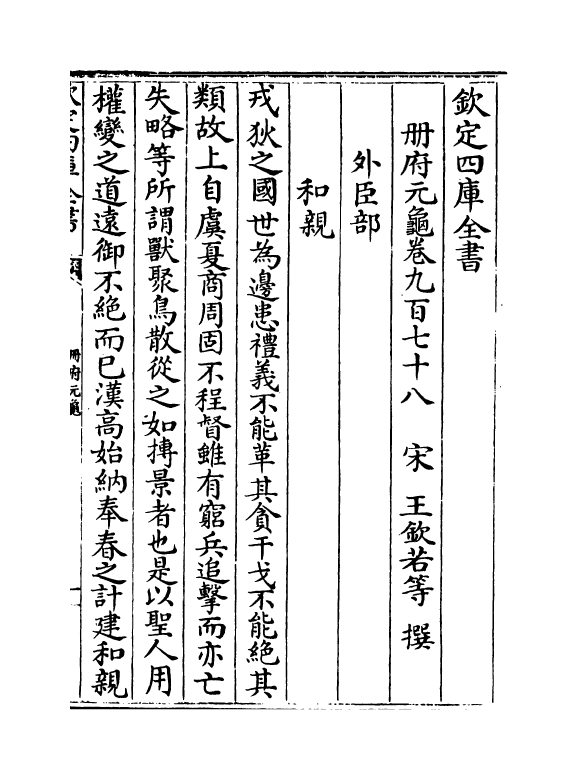 欽定四庫全書
冊府元龜卷九百七十八　宋　王欽若等　撰
外臣部
和親
戎狄之國世為邊患禮義不能革其貪干戈不能絕其
類故上自虞夏商周固不程督雖有窮兵追擊而亦亡
失略等所謂獸聚鳥散從之如摶景者也是以聖人用
權變之道遠御不絕而已漢高始納奉春之計建和親
冊府元龜
一